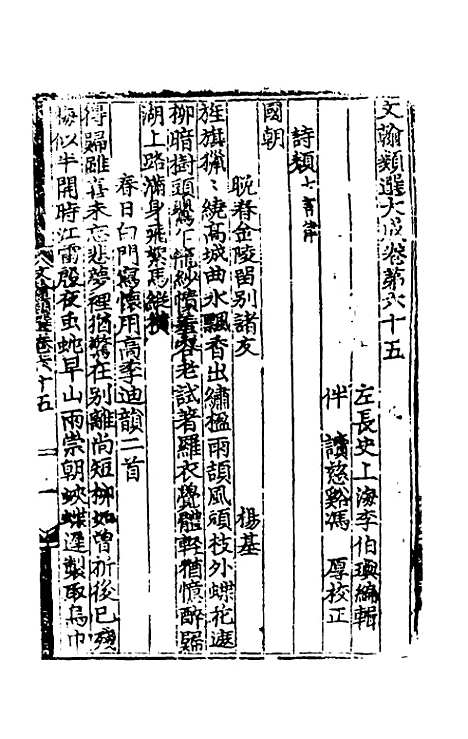 文翰類選大成卷第六十五
左長史上海李伯璵編輯
伴讀慈谿馮厚校正
詩類七言律
國朝
晚春金陵留別諸友 楊基
旌旗獵〻繞高城曲水飄香出繡楹雨頡風頑枝外蝶花遮
柳暗樹頭鶯仁
老試著羅衣覺體輕猶憶醉歸
湖上路滿身飛絮馬縱橫
春日白門寫懷用高季迪韻二首
得歸雖喜未忘悲夢裡猶驚在別離尚短柳如曾折後已殘
梅似半開時江雷殷夜蟲蛇早山雨崇朝蛺蝶遲製取烏巾
文翰類選卷六十五
一